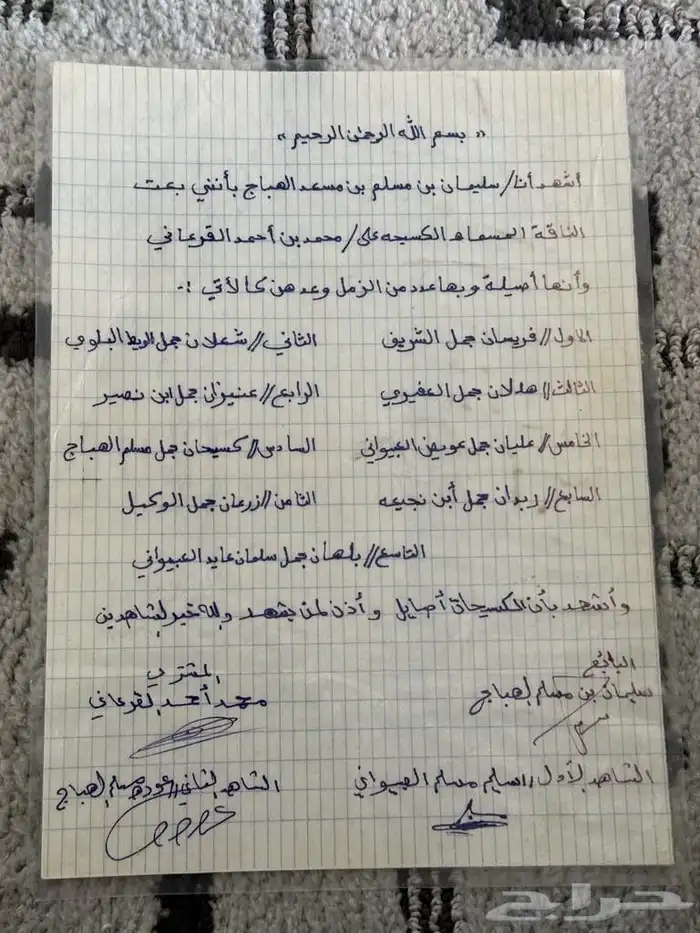 « بسم الله الرحمن الرحيم »
أشهد أنا / سليمان بن مسلم بن مسعد الهباج بأنني بعت
الناقة المسماه الكسيحه على / محمد بن أحمد القرعاني
وأنها أصيلة وبها عدد من الزمل وعدهن كالأتي :-
الاول // فريسان جمل الشريف الثاني // شعلان جمل الربط البلوي
الثالث // هدلان جمل العفيوي الرابع // عنيزان جمل ابن نصير
الخامس // عليان جمل عويض العبيواني السادس // كسيحان جمل مسلم الهباج
السابع // ربدان جمل أبن نجيعه الثامن // زرعان جمل الوكيل
التاسع // بلهان جمل سلمان عايد العبيواني
وأشهد بأن الكسيحات أصايل وأذن لمن يشهد والله خير الشاهدين
البائع المشتري
سليمان بن مسلم الهباج محمد أحمد القرعاني
الشاهد الأول / اسليم مسلم العبيواني الشاهد الثاني / عوده مسلم الهباج
حراج